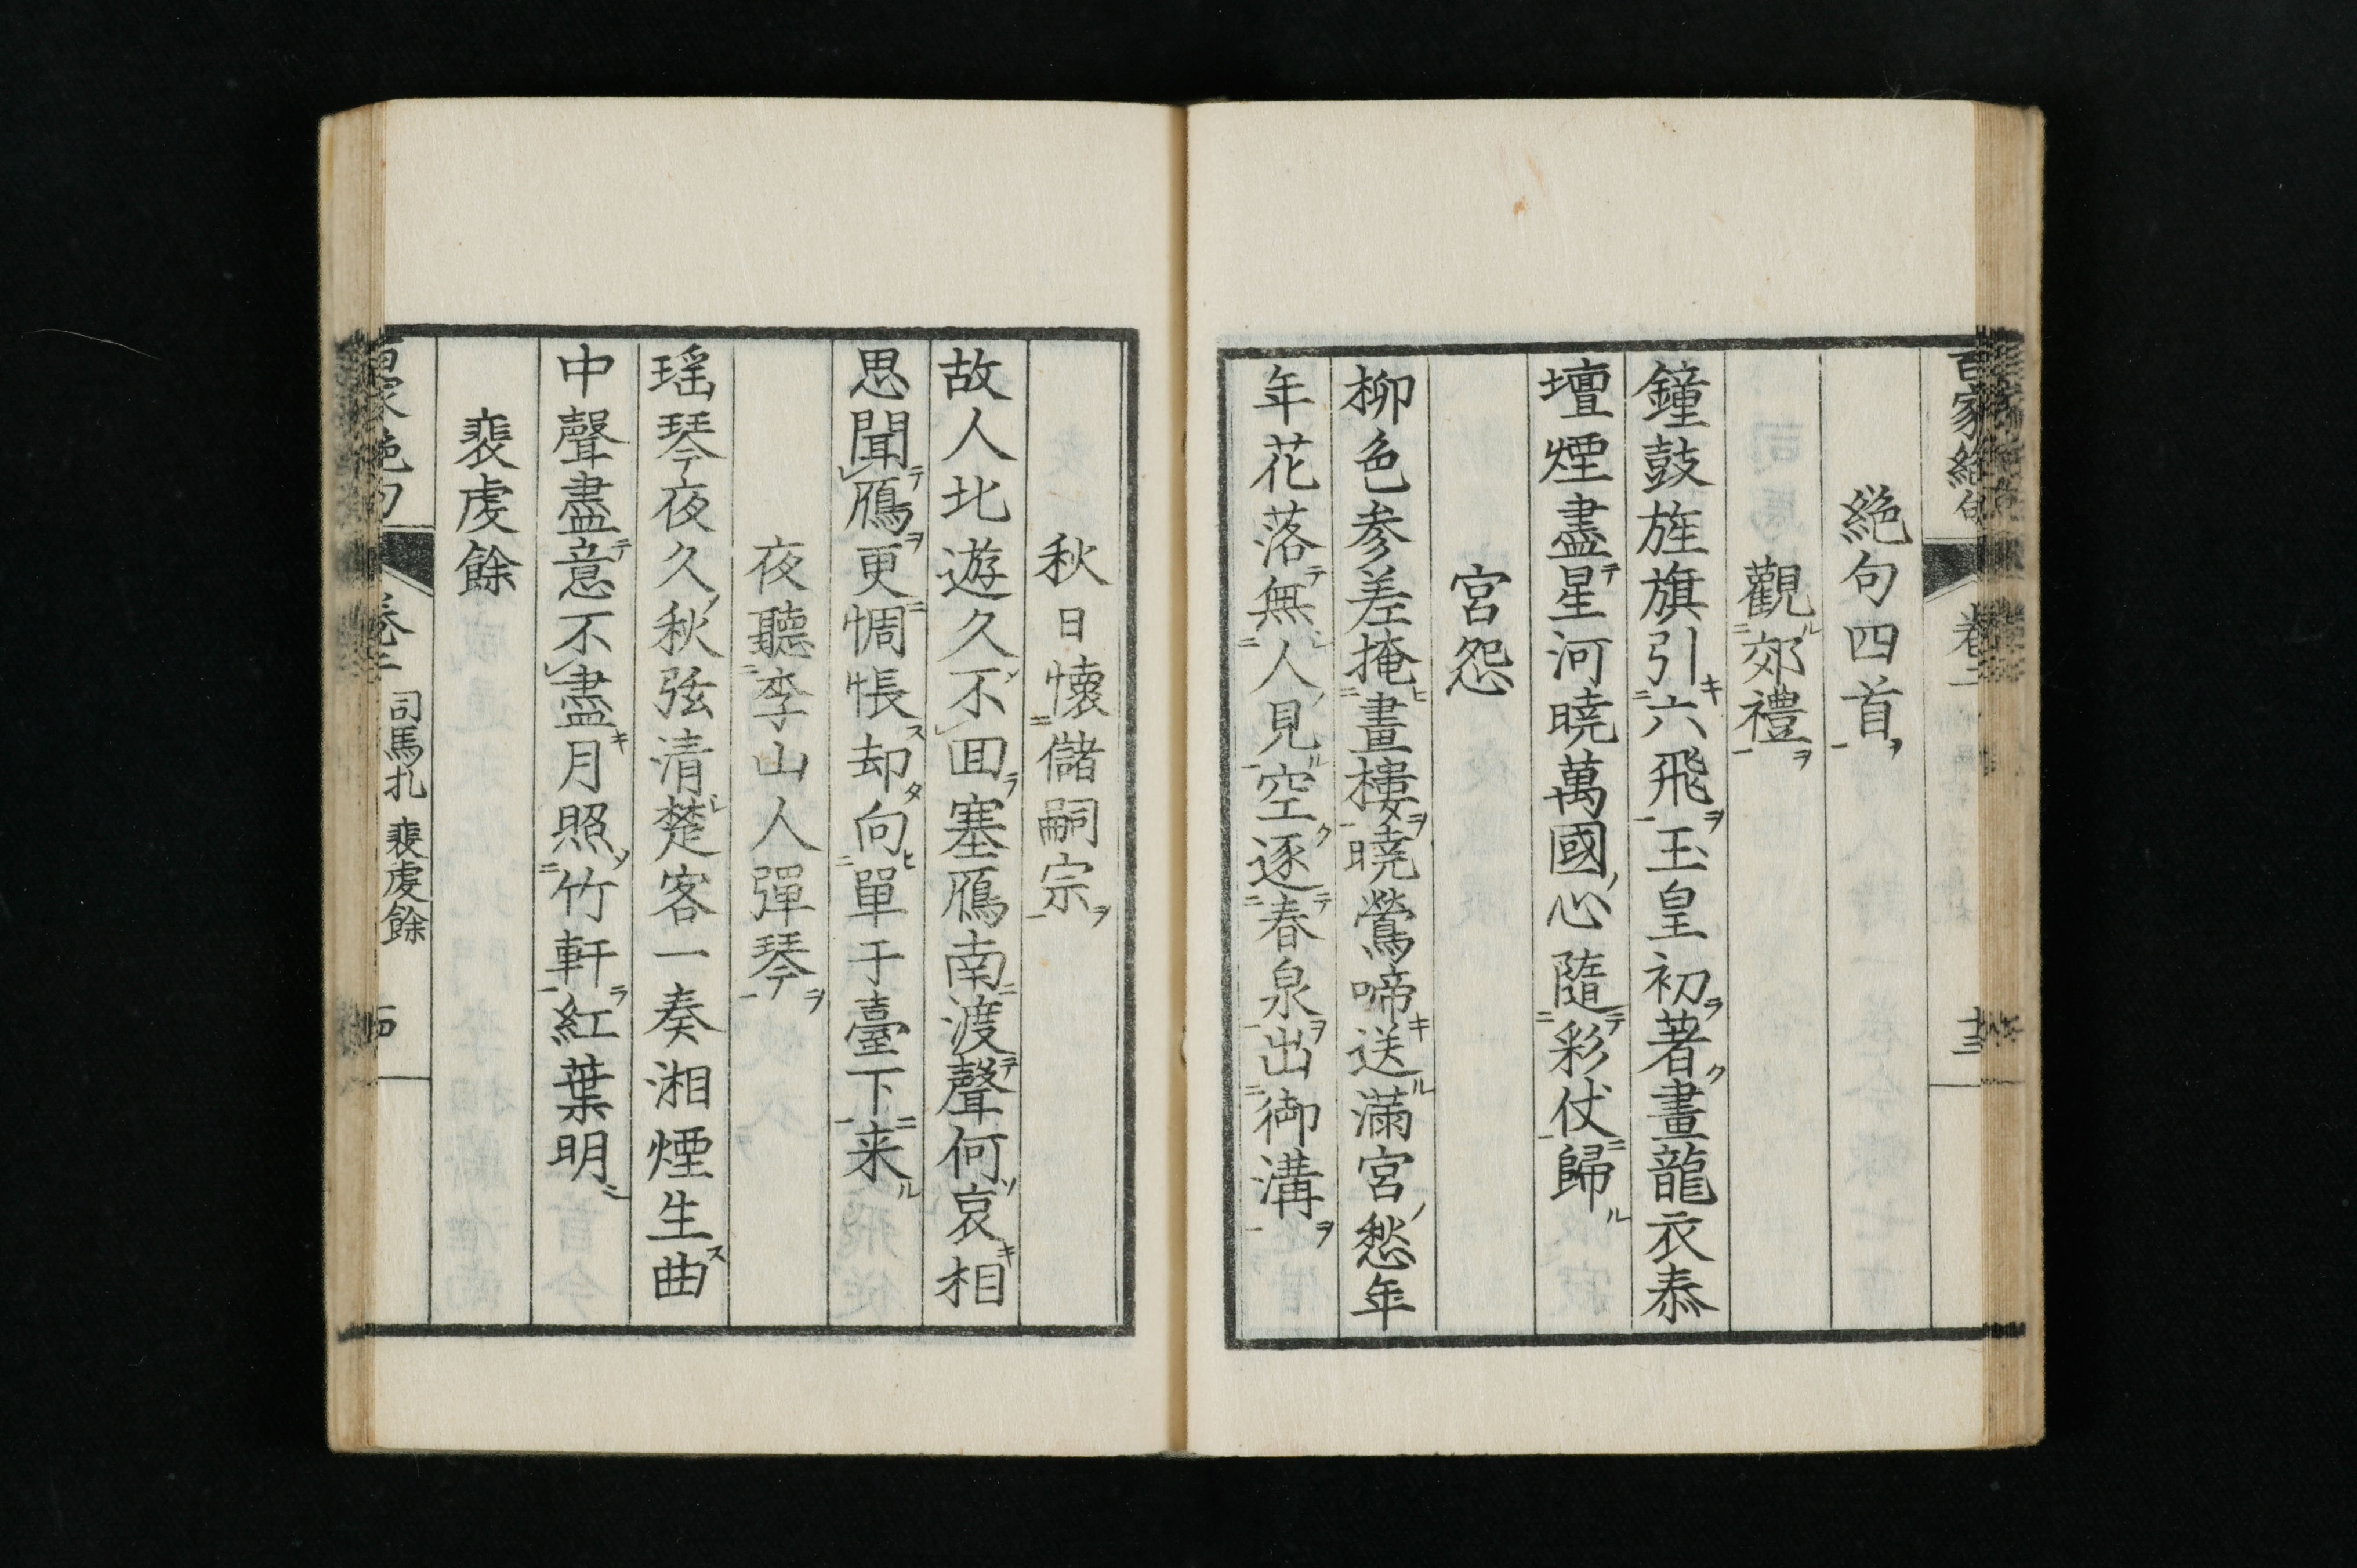 絶句四首
觀郊禮
鐘鼓旌旗引六飛玉皇初著畫龍衣泰
壇煙盡星河曉萬國心隨彩仗歸
宮怨
柳色参差掩畫樓曉鶯啼送滿宮愁年
年花落無人見空逐春泉出御溝
秋日懐儲嗣宗
故人北遊久不回塞鴈南渡聲何哀相
思聞鴈更惆悵却向單于臺下来
夜聽李山人彈琴
瑶琴夜久秋弦清楚客一奏湘煙生曲
中聲盡意不盡月照竹軒紅葉明
裴虔餘
司馬扎 裴虔餘